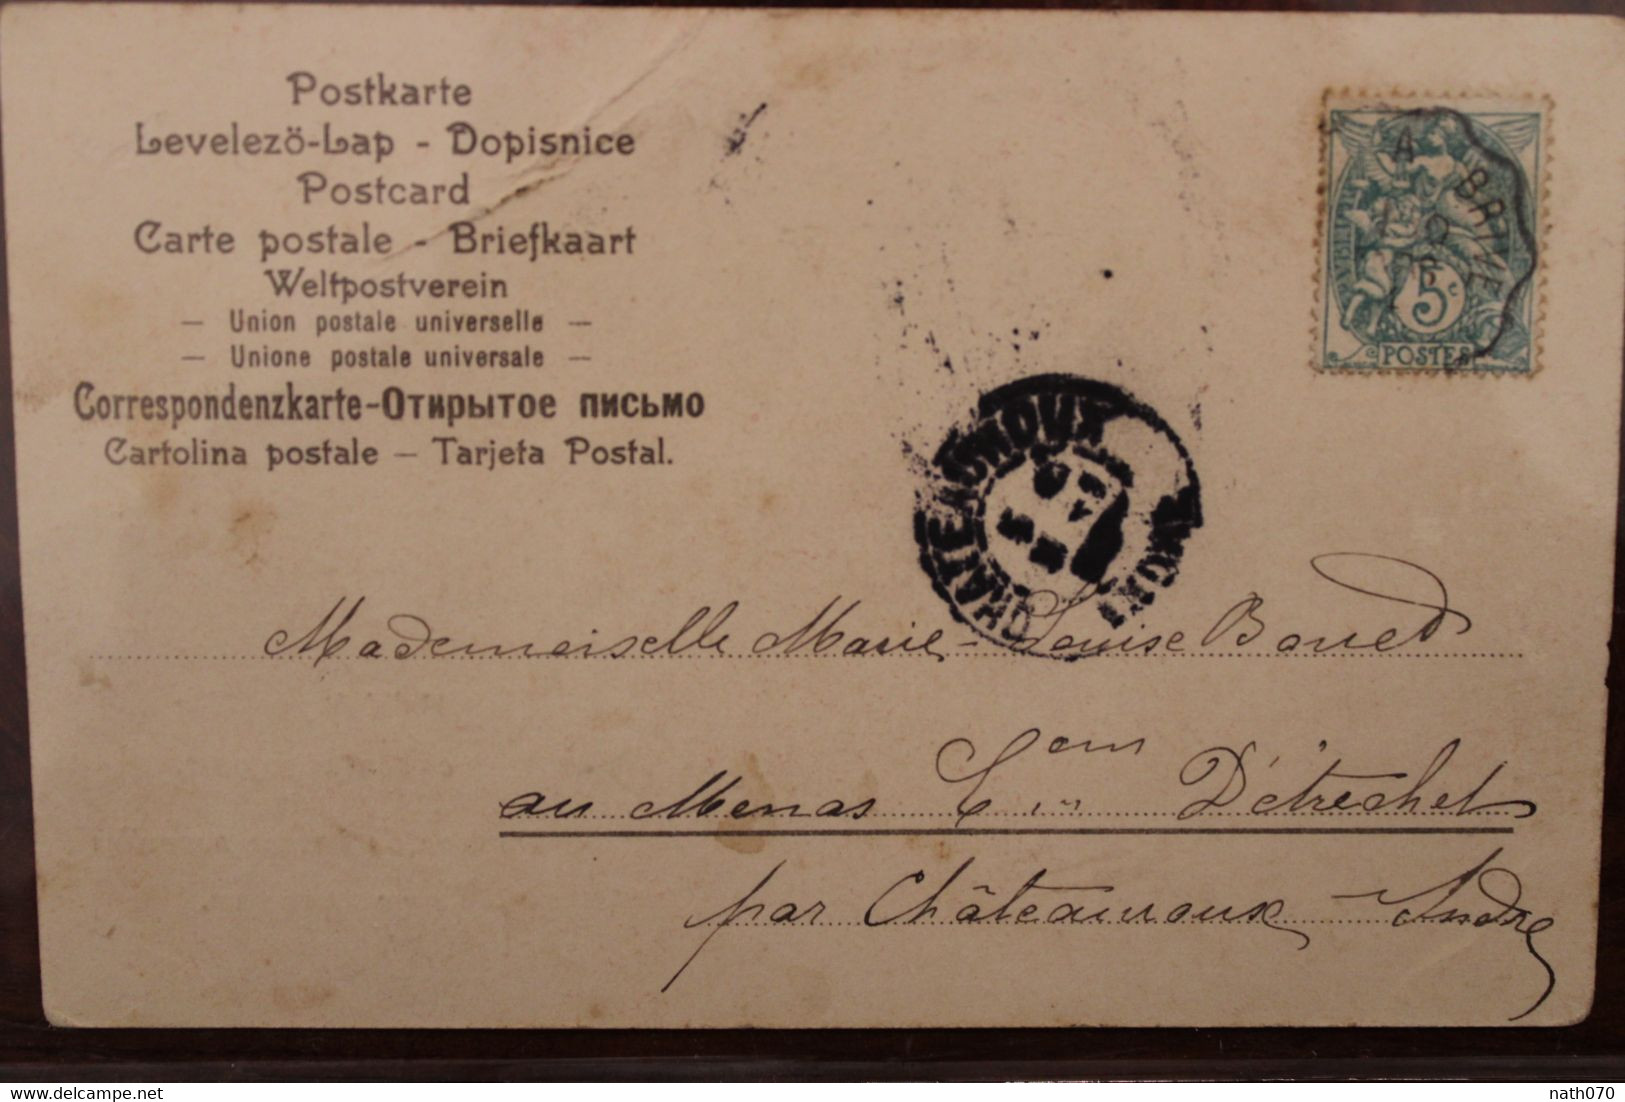 Postkarte
Levelezö-Lap - Dopisnice
Postcard
Carte postale - Briefkaart
Weltpostverein
— Union postale universelle —
— Unione postale universale —
Correspondenzkarte-Отирытое письмо
Cartolina postale — Tarjeta Postal.
A
BRIVE
5c
POSTES
CHATEAUROUX
INDRE
Mademoiselle Marie-Louise Boued
au Menas Cem
D'étrechet
par Châteauroux - Indre
delcampe.net
nath070